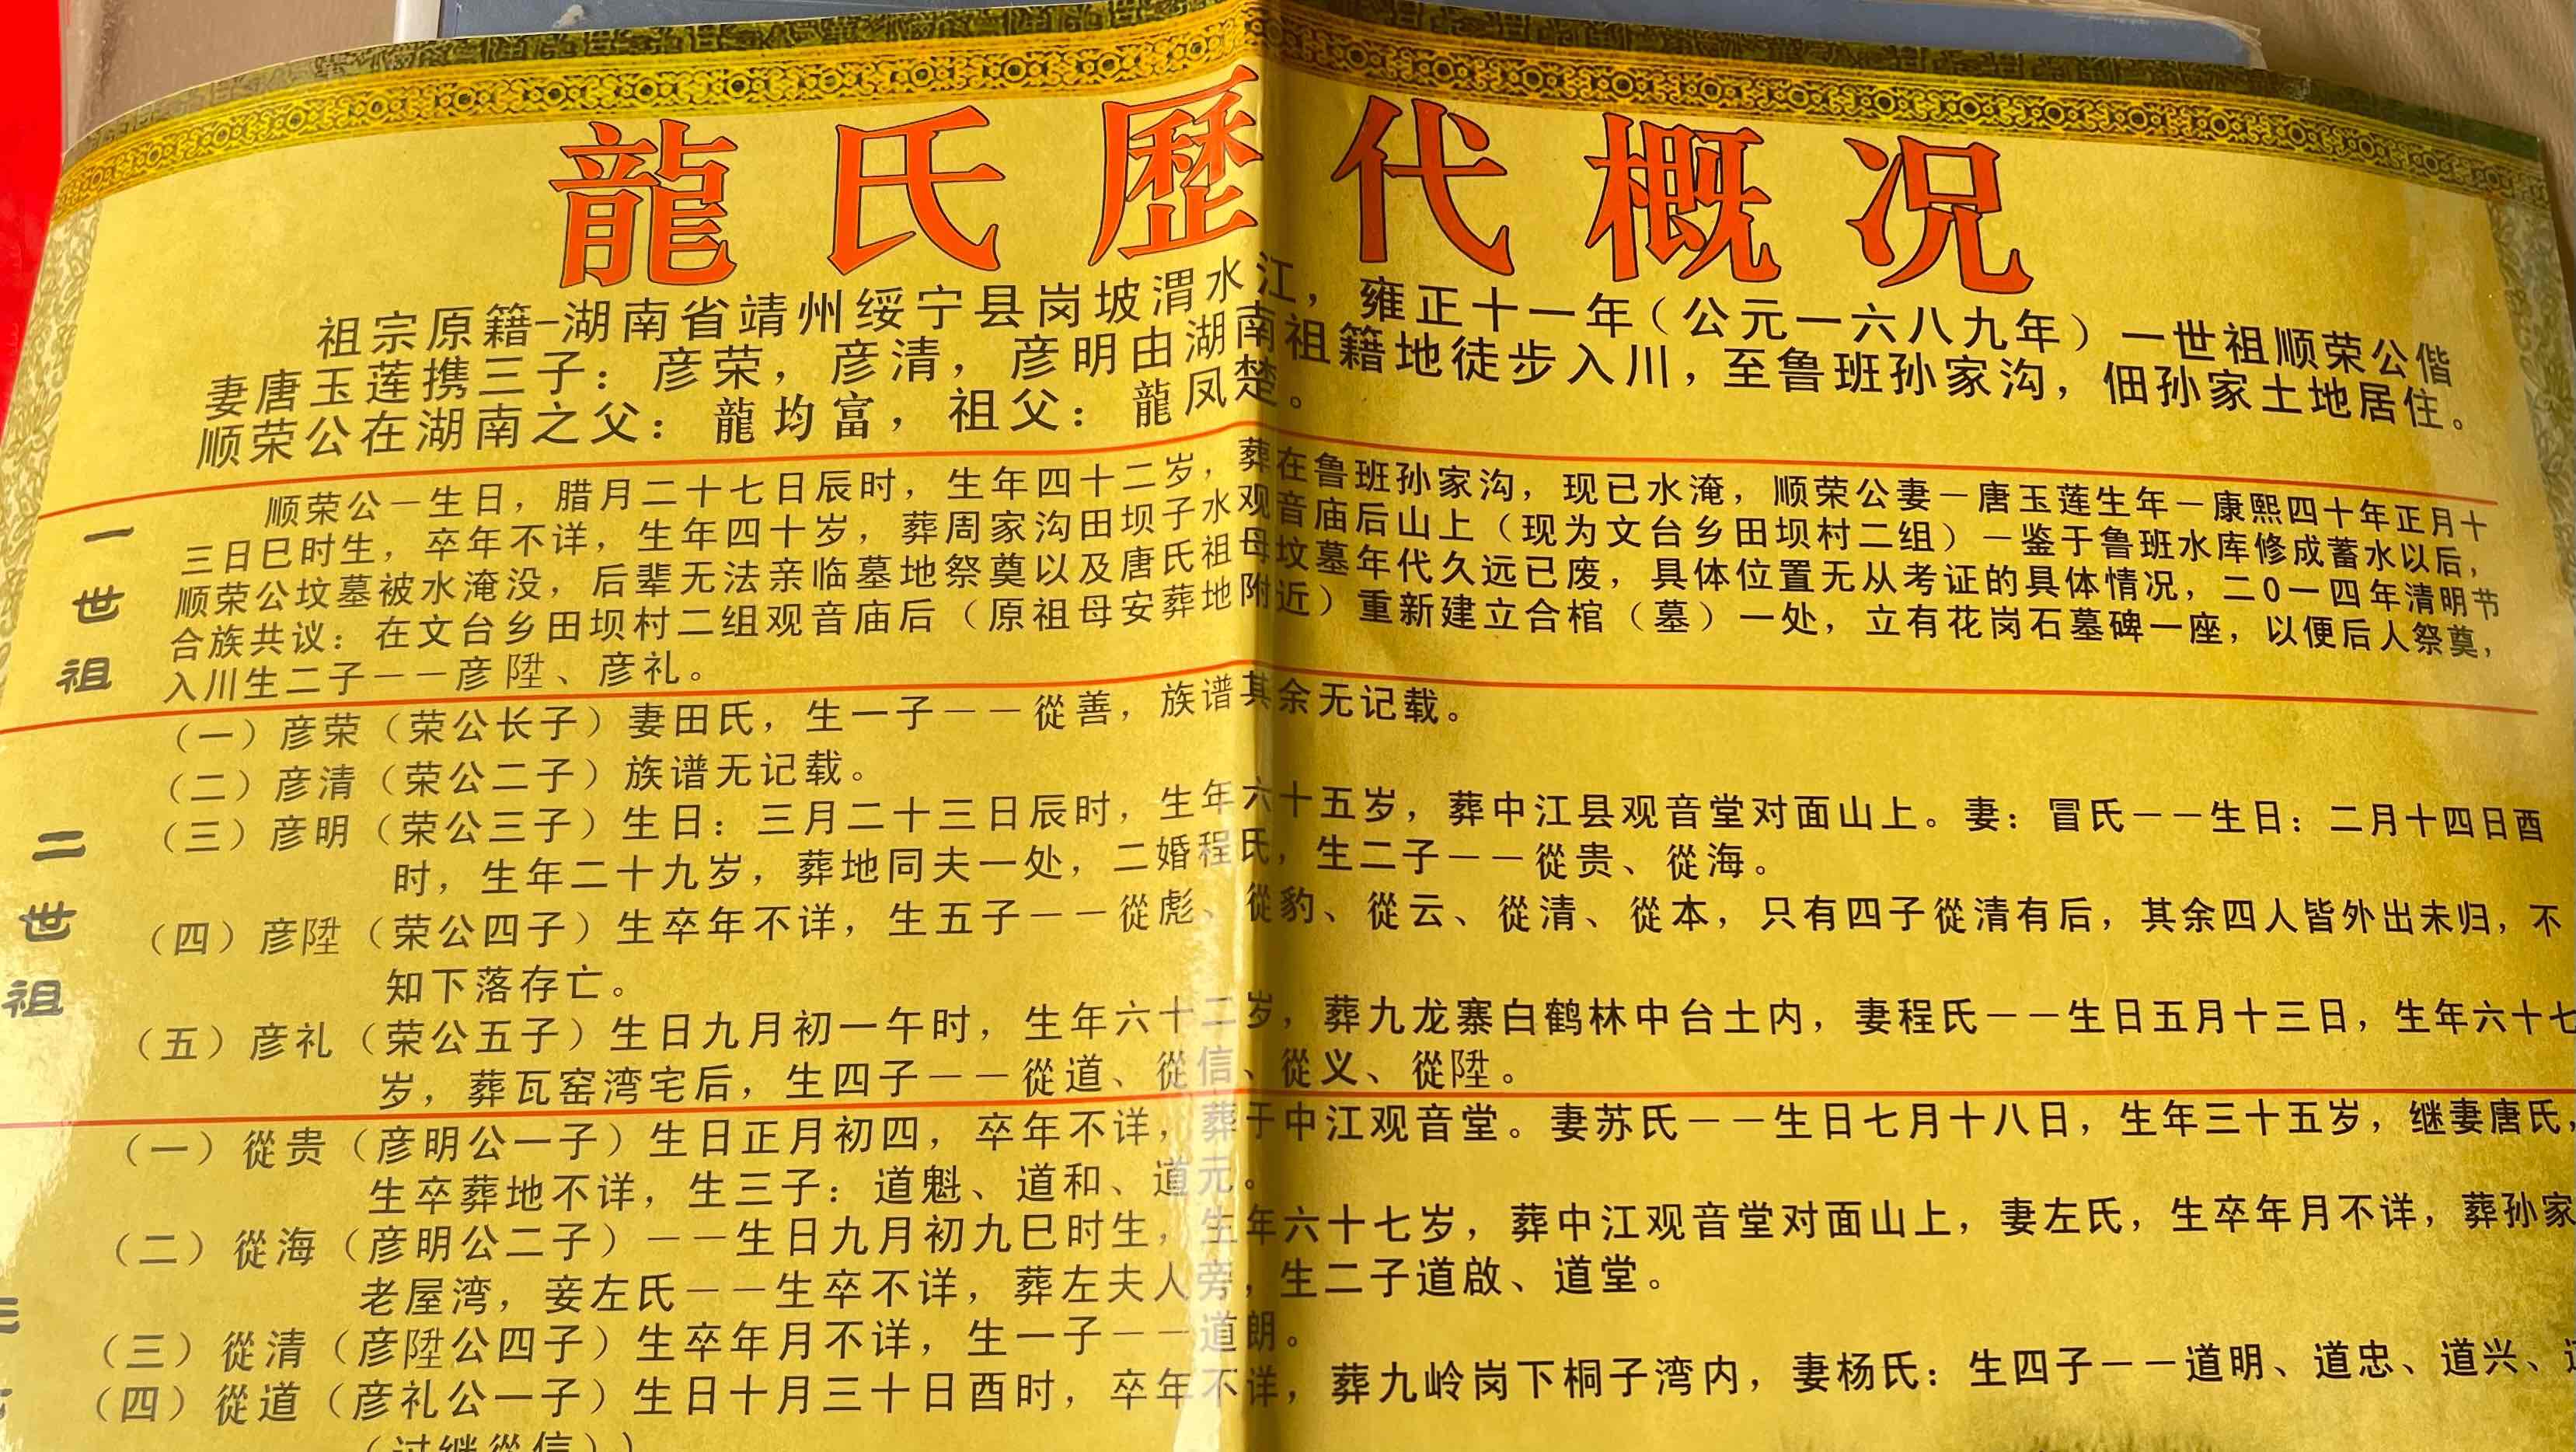 龍氏歷代概况
祖宗原籍-湖南省靖州绥宁县岗坡渭水江，雍正十一年（公元一六八九年）一世祖顺荣公偕
妻唐玉莲携三子：彦荣，彦清，彦明由湖南祖籍地徒步入川，至鲁班孙家沟，佃孙家土地居住。
顺荣公在湖南之父：龍均富，祖父：龍凤楚。
一世祖
顺荣公－生日，腊月二十七日辰时，生年四十二岁，葬在鲁班孙家沟，现已水淹，顺荣公妻－唐玉莲生年－康熙四十年正月十
三日巳时生，卒年不详，生年四十岁，葬周家沟田坝子水观音庙后山上（现为文台乡田坝村二组）－鉴于鲁班水库修成蓄水以后，
顺荣公坟墓被水淹没，后辈无法亲临墓地祭奠以及唐氏祖母坟墓年代久远已废，具体位置无从考证的具体情况，二0一四年清明节
合族共议：在文台乡田坝村二组观音庙后（原祖母安葬地附近）重新建立合棺（墓）一处，立有花岗石墓碑一座，以便后人祭奠，
入川生二子－－彦陞、彦礼。
二世祖
（一）彦荣（荣公长子）妻田氏，生一子－－從善，族谱其余无记载。
（二）彦清（荣公二子）族谱无记载。
（三）彦明（荣公三子）生日：三月二十三日辰时，生年六十五岁，葬中江县观音堂对面山上。妻：冒氏－－生日：二月十四日酉
时，生年二十九岁，葬地同夫一处，二婚程氏，生二子－－從贵、從海。
（四）彦陞（荣公四子）生卒年不详，生五子－－從彪、從豹、從云、從清、從本，只有四子從清有后，其余四人皆外出未归，不
知下落存亡。
（五）彦礼（荣公五子）生日九月初一午时，生年六十二岁，葬九龙寨白鹤林中台土内，妻程氏－－生日五月十三日，生年六十七
岁，葬瓦窑湾宅后，生四子－－從道、從信、從义、從陞。
（一）從贵（彦明公一子）生日正月初四，卒年不详，葬于中江观音堂。妻苏氏－－生日七月十八日，生年三十五岁，继妻唐氏，
生卒葬地不详，生三子：道魁、道和、道元。
（二）從海（彦明公二子）－－生日九月初九巳时生，生年六十七岁，葬中江观音堂对面山上，妻左氏，生卒年月不详，葬孙家
老屋湾，妾左氏－－生卒不详，葬左夫人旁，生二子道啟、道堂。
（三）從清（彦陞公四子）生卒年月不详，生一子－－道朗。
（四）從道（彦礼公一子）生日十月三十日酉时，卒年不详，葬九岭岗下桐子湾内，妻杨氏：生四子－－道明、道忠、道兴、
（过继從信）